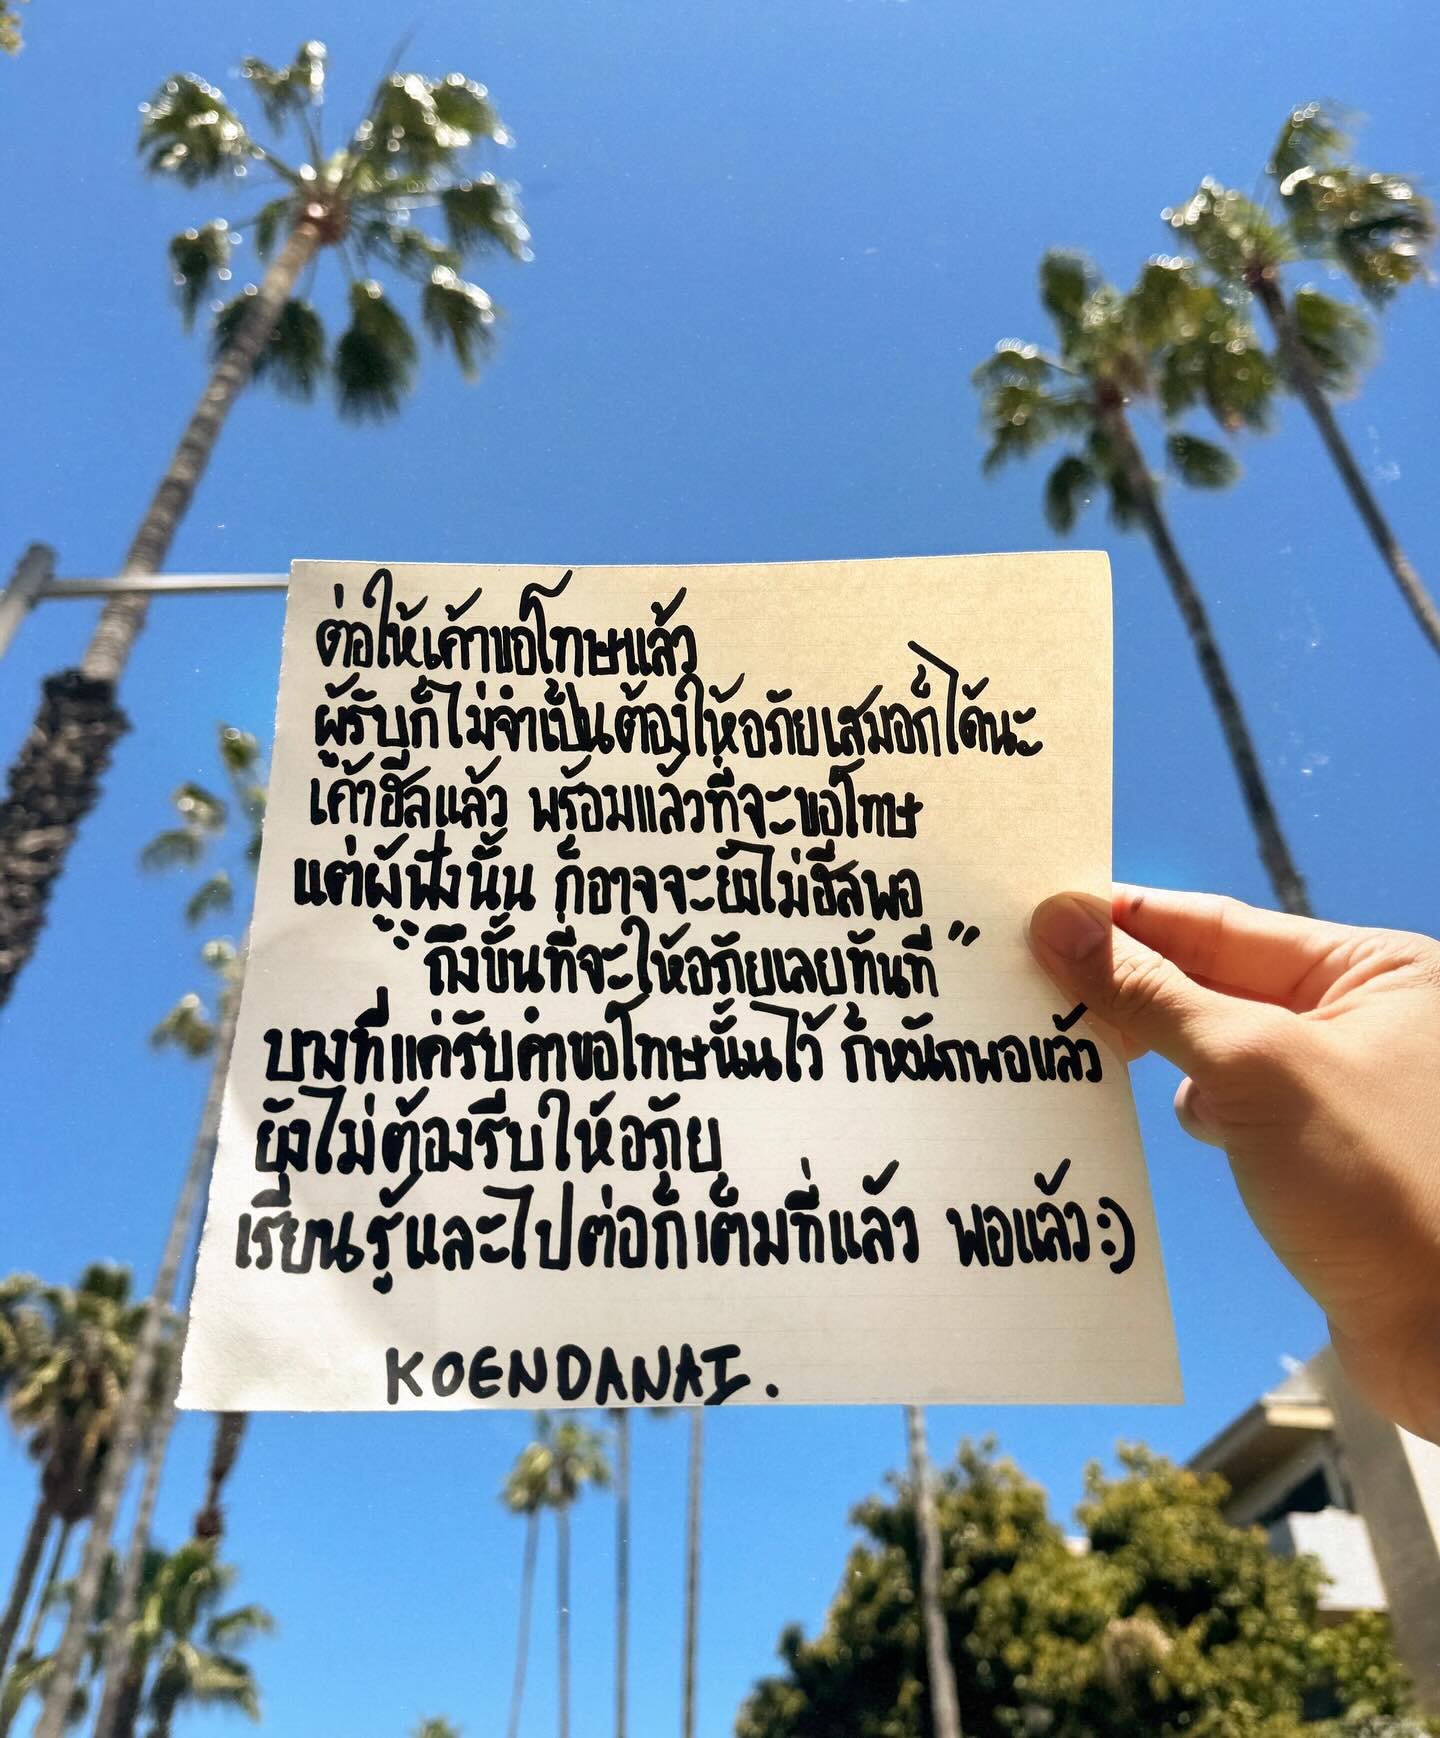 ต่อให้เค้าขอโทษแล้ว
ผู้รับก็ไม่จำเป็นต้องให้อภัยเสมอก็ได้นะ
เค้าฮีลแล้ว พร้อมแล้วที่จะขอโทษ
แต่ผู้ฟังนั้น ก็อาจจะยังไม่ฮีลพอ
"ถึงขั้นที่จะให้อภัยเลยทันที"
บางทีแค่รับคำขอโทษนั้นไว้ ก็หนักพอแล้ว
ยังไม่ต้องรีบให้อภัย
เรียนรู้และไปต่อก็เต็มที่แล้ว พอแล้ว:)
KOENDANAI.